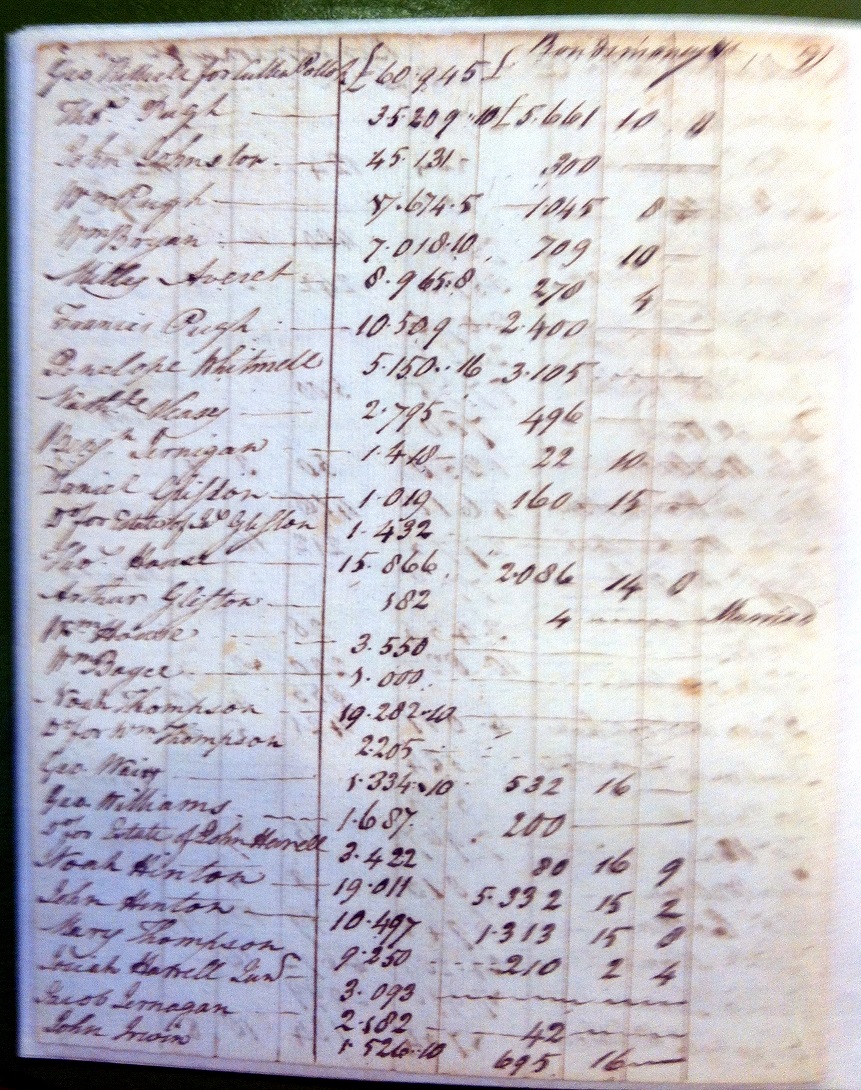 Bonds & money
Geo. for Cullen Pollok £60.945 £
Thos. Pugh 35.209.10 £5.661 10 0
John Johnston 45.131 300
Wm Pugh 17.674.5 1045 8
Wm Bryan 7.018.10 709 10
Milley Averet 8.965.8 270 4
Francis Pugh 10.509 2.400
Penelope Whitmell 5.150..16 3.105
2.795 496
Jernigan 22 10
Daniel Glisson 1.019 160 15
Do for Estate of Glisson 1.432
Thos. House 15.866 2.086 14 0
Arthur Glisson 182 4 Married
Wm House 3.550
Wm 1.000
Noah Thompson 19.282.10
Do for Wm Thompson 2.205
Geo. 1.334.10 532 16
Geo Williams 1.687 200
Do for Estate of John Harrell 3.422 80 16 9
Noah Hinton 19.011 5.332 15 2
John Hinton 10.497 1.313 15 0
Mary Thompson 9.250 210 2 4
Josiah Harrell Junr 3.093
Jacob Jernagan 2.182 42
John Irwin 1.526.10 695 16